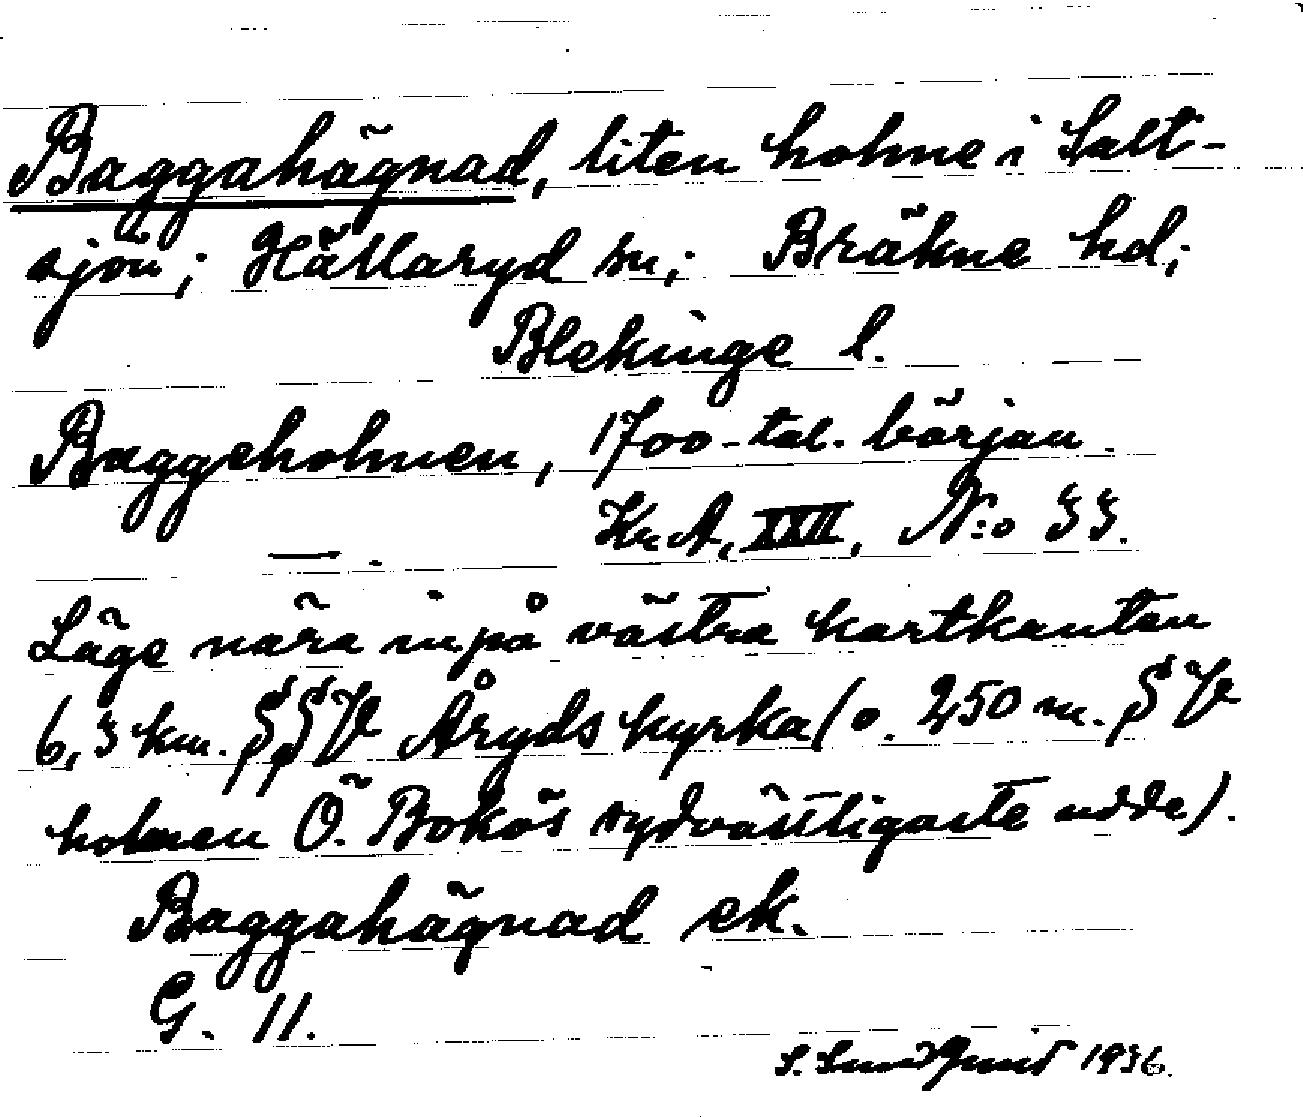 Baggahägnad, liten holme i Salt-
sjön; Hällaryd sn; Bräkne hd;
Blekinge l.
Baggeholmen, 1700-tal. början.
Kr.A, XXII, N:o 33.
—.
Läge nära inpå västra kartkanten
6,3 km. SSV Åryds kyrka (o. 250 m. SV
holmen Ö. Bokös sydvästligaste udde).
Baggahägnad ek.
G. 11.
S. 1936.